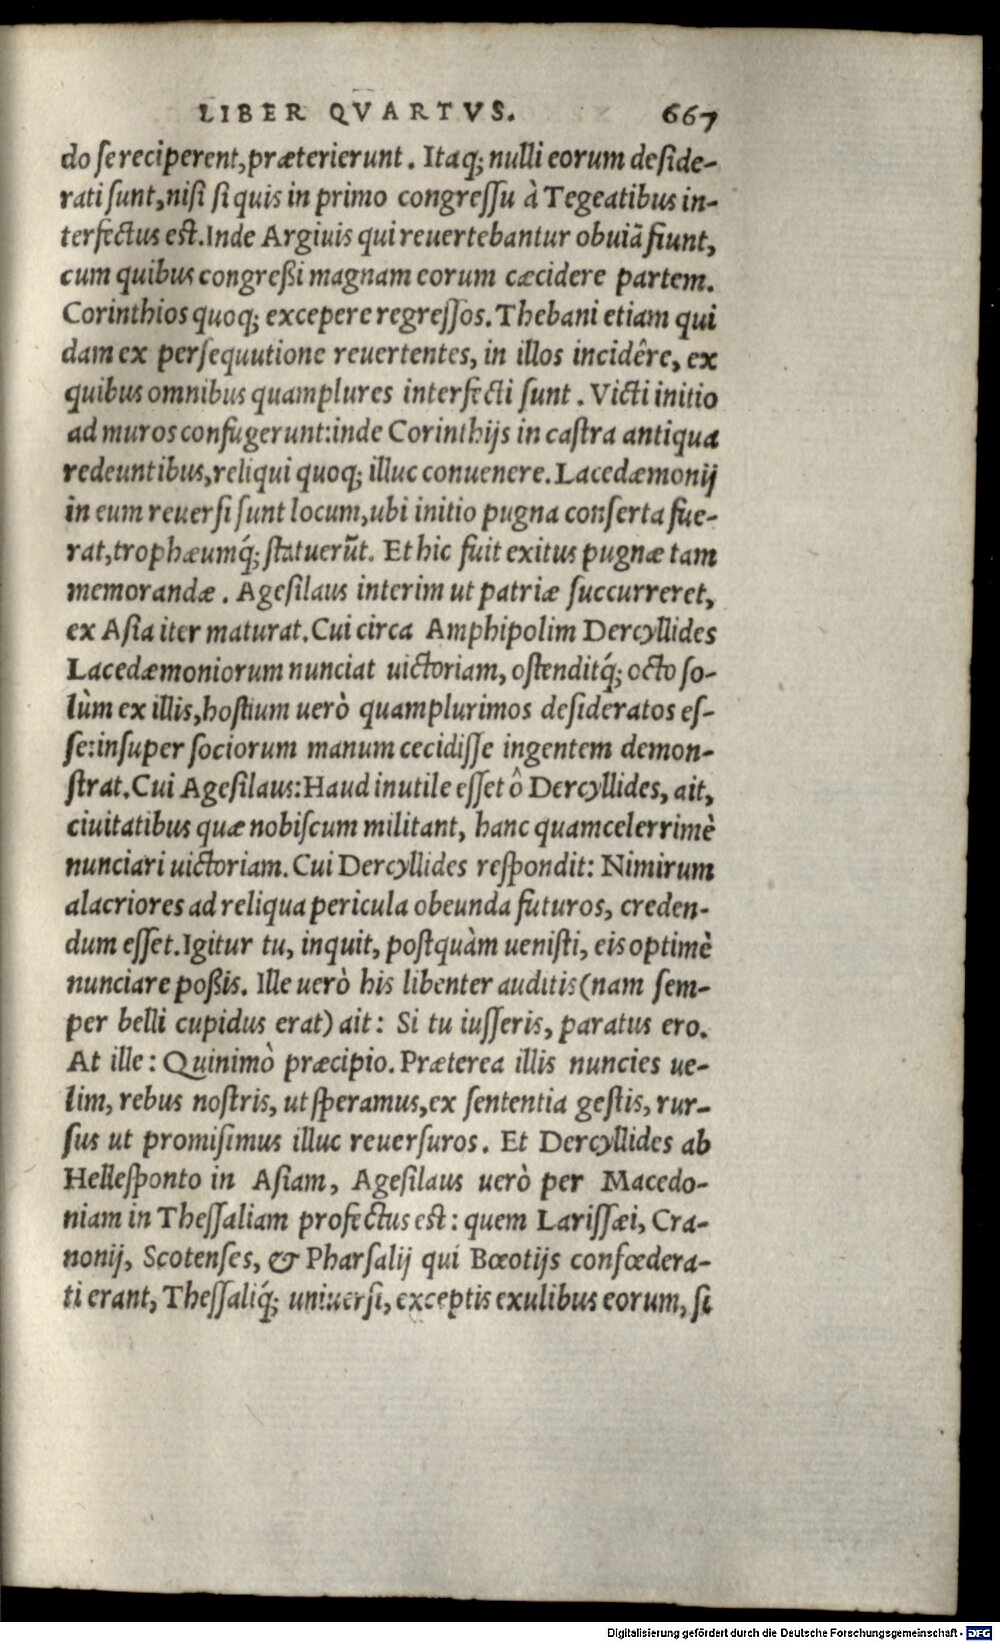 LIBER QVARTVS. 667
do se reciperent, præterierunt. Itaq; nulli eorum deside-
rati sunt, nisi si quis in primo congressu à Tegeatibus in-
terfectus est. Inde Argiuis qui reuertebantur obuiã fiunt,
cum quibus congreßi magnam eorum cæcidere partem.
Corinthios quoq; excepere regressos. Thebani etiam qui
dam ex persequutione reuertentes, in illos incidêre, ex
quibus omnibus quamplures interfecti sunt. Victi initio
ad muros confugerunt: inde Corinthijs in castra antiqua
redeuntibus, reliqui quoq; illuc conuenere. Lacedæmonij
in eum reuersi sunt locum, ubi initio pugna conserta fue-
rat, trophæumq́; statuerũt. Et hic fuit exitus pugnæ tam
memorandæ. Agesilaus interim ut patriæ succurreret,
ex Asia iter maturat. Cui circa Amphipolim Dercyllides
Lacedæmoniorum nunciat uictoriam, ostenditq́; octo so-
lùm ex illis, hostium uerò quamplurimos desideratos es-
se: insuper sociorum manum cecidisse ingentem demon-
strat. Cui Agesilaus: Haud inutile esset ô Dercyllides, ait,
ciuitatibus quæ nobiscum militant, hanc quamcelerrimè
nunciari uictoriam. Cui Dercyllides respondit: Nimirum
alacriores ad reliqua pericula obeunda futuros, creden-
dum esset. Igitur tu, inquit, postquàm uenisti, eis optimè
nunciare poßis. Ille uerò his libenter auditis (nam sem-
per belli cupidus erat) ait: Si tu iusseris, paratus ero.
At ille: Quinimò præcipio. Præterea illis nuncies ue-
lim, rebus nostris, ut speramus, ex sententia gestis, rur-
sus ut promisimus illuc reuersuros. Et Dercyllides ab
Hellesponto in Asiam, Agesilaus uerò per Macedo-
niam in Thessaliam profectus est: quem Larissæi, Cra-
nonij, Scotenses, & Pharsalij qui Bœotijs confœdera-
ti erant, Thessaliq́; uniuersi, exceptis exulibus eorum, si
Digitalisierung gefördert durch die Deutsche Forschungsgemeinschaft - DFG